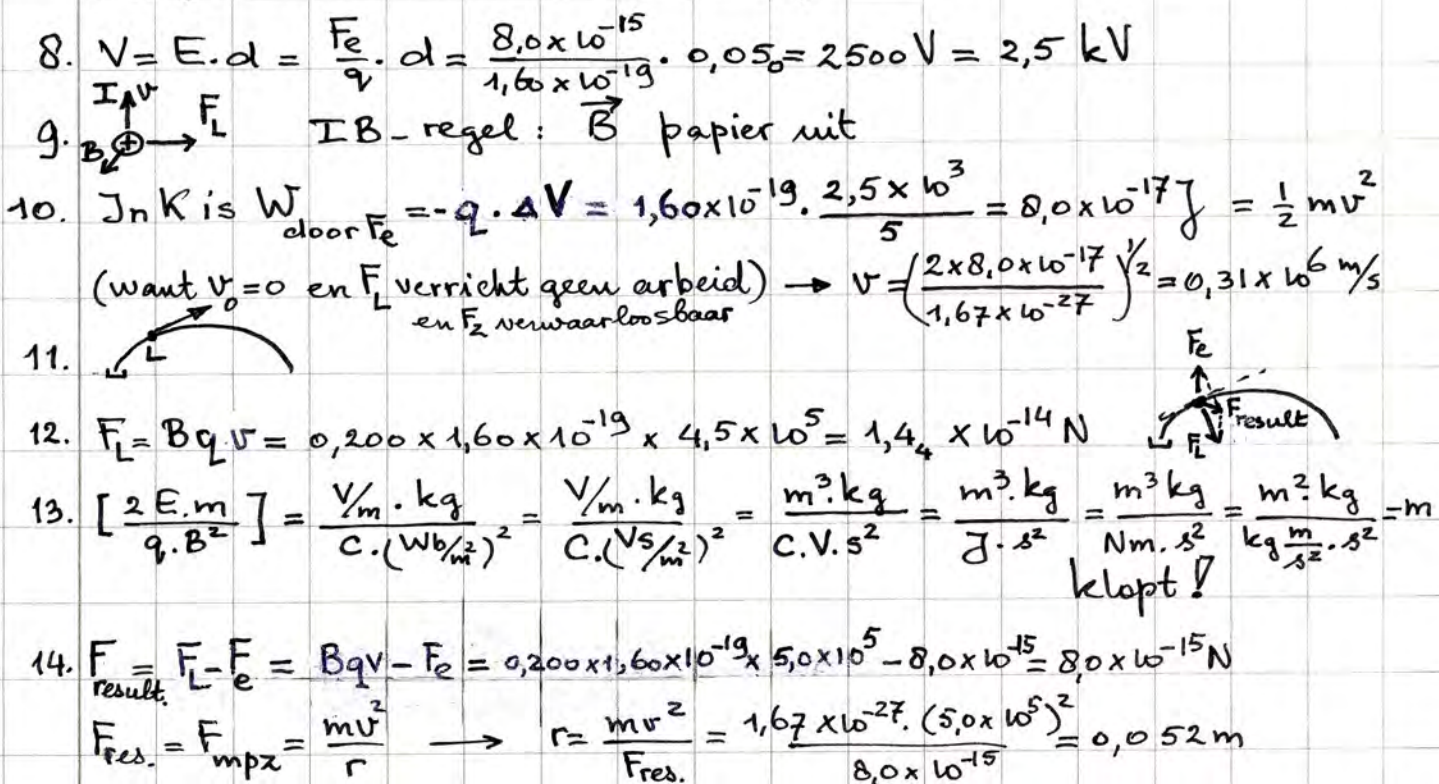 8. V = E.d = Fe/q . d = 8,0×10⁻¹⁵/1,60×10⁻¹⁹ . 0,05₀ = 2500 V = 2,5 kV
I v
9. B ⊕ F_L IB-regel : B⃗ papier uit
10. In K is W door Fe = -q . ΔV = 1,60×10⁻¹⁹ . 2,5×10³/5 = 8,0×10⁻¹⁷ J = ½ mv²
(want v₀=0 en F_L verricht geen arbeid) → v = (2×8,0×10⁻¹⁷/1,67×10⁻²⁷)^½ = 0,31×10⁶ m/s
en F_z verwaarloosbaar
11. L v
Fe
F result
F_L
12. F_L = Bqv = 0,200×1,60×10⁻¹⁹ × 4,5×10⁵ = 1,4₄ ×10⁻¹⁴ N
13. [2E.m/q.B²] = V/m . kg/C.(Wb/m²)² = V/m . kg/C.(Vs/m²)² = m³.kg/C.V.s² = m³.kg/J.s² = m³kg/Nm.s² = m².kg/kg m/s² . s² = m
klopt !
14. F result. = F_L - F_e = Bqv - Fe = 0,200×1,60×10⁻¹⁹× 5,0×10⁵ - 8,0×10⁻¹⁵ = 8,0×10⁻¹⁵ N
F res. = F mpz = mv²/r → r = mv²/F res. = 1,67×10⁻²⁷ . (5,0×10⁵)²/8,0×10⁻¹⁵ = 0,052 m